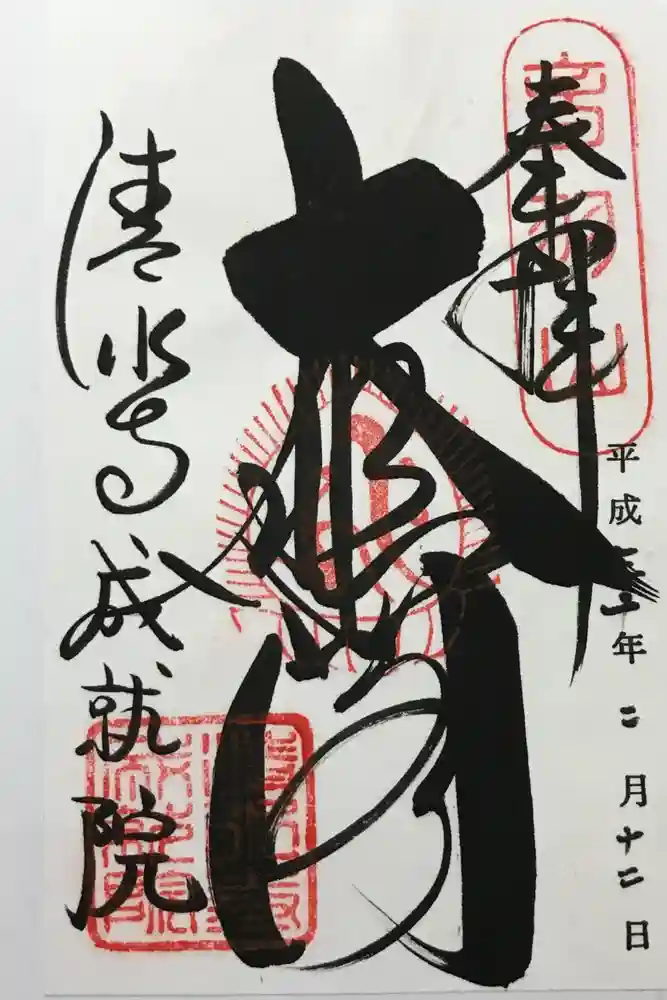 奉拝
音羽山
平成 年二月十二日
大悲閣
清水寺成就院